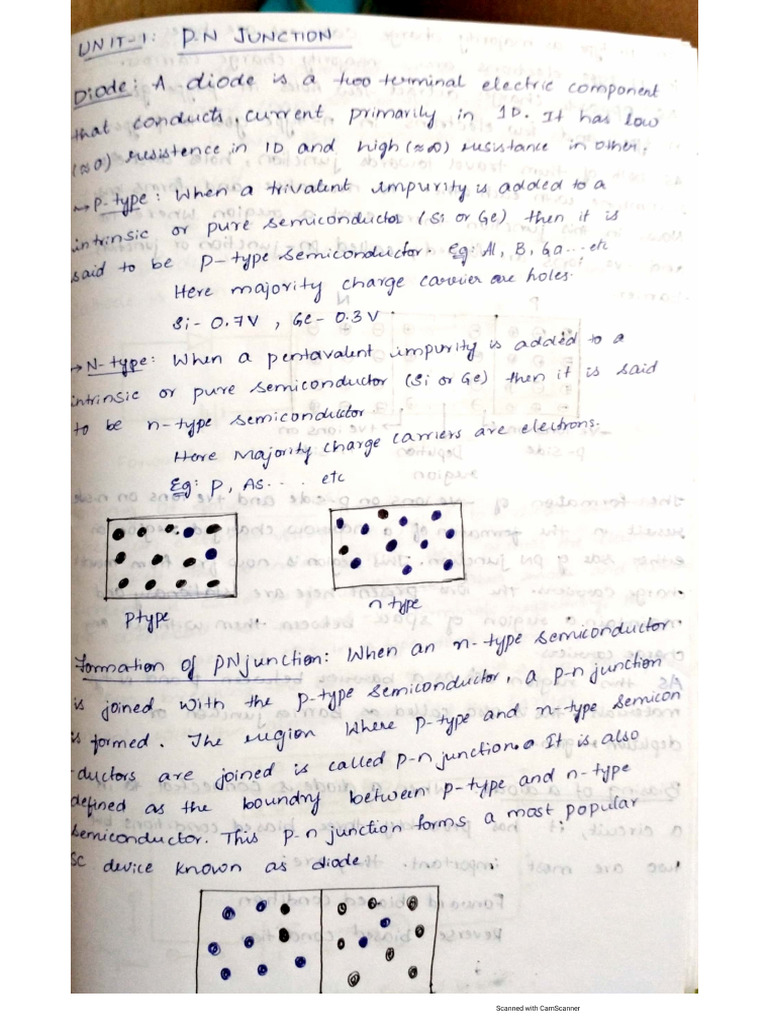 UNIT-1: P.N JUNCTION
Diode: A diode is a two terminal electric component
that conducts current primarily in 1D. It has low
(≈0) resistence in 1D and high (≈∞) resistance in other.
→ P-type: When a trivalent impurity is added to a
intrinsic or pure semiconductor (Si or Ge) then it is
said to be P-type Semiconductor. Eg: Al, B, Ga... etc
Here majority charge carrier are holes.
Si- 0.7V , Ge- 0.3V.
→ N-type: When a pentavalent impurity is added to a
intrinsic or pure semiconductor (Si or Ge) then it is said
to be n-type semiconductor
Here Majority charge carriers are electrons.
Eg: P, AS..... etc
Ptype
n type
Formation of PN junction: When an n-type semiconductor
is joined with the p-type semiconductor, a p-n junction
is formed. The region where p-type and n-type semicon
-ductors are joined is called p-n junction. It is also
defined as the boundry between p-type and n-type
semiconductor. This p-n junction forms a most popular
SC device known as diode
Scanned with CamScanner